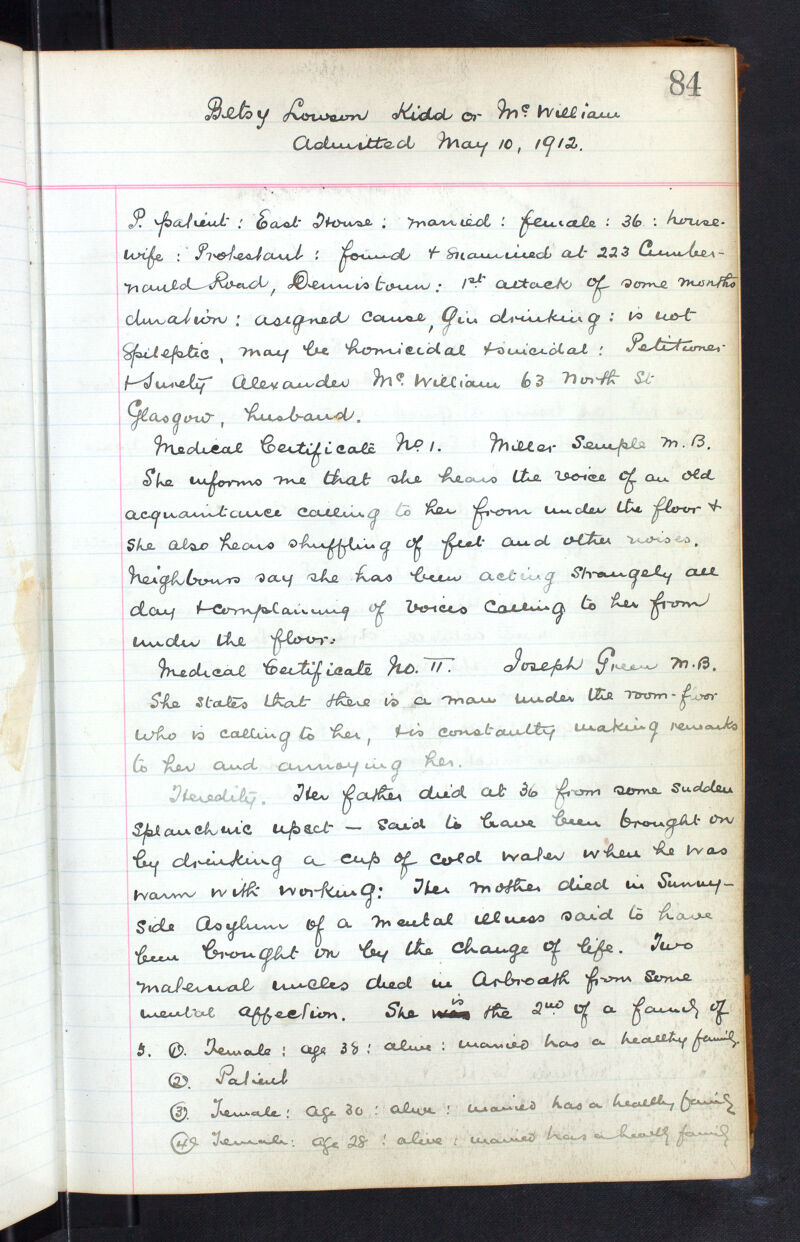 84
Betsy Lowson Kidd or Mc William
Admitted May 10, 1912.
P. patient : East House : married : female : 36 : house-
wife : Protestant : found & examined at 223 Cumber-
nauld Road, Dennistoun : 1st attack of some months
duration : asigned cause, Gin drinking : is not
epileptic, may be homicidal & suicidal : Petitioner
& Surety Alexander Mc William 63 North St
Glasgow, husband.
Medical Certificate No 1. Miller Semple M.B.
She informs me that she hears the voice of an old
acquaintance calling to her from under the floor &
she also hears shuffling of feet and other noises.
Neighbours say she has been acting strangely all
day & complaining of voices calling to her from
under the floor.
Medical Certificate No. II. Joseph Green M.B.
She states that there is a man under the room-floor
who is calling to her, & is constantly making remarks
to her and annoying her.
Heredity. Her father died at 36 from some sudden
splanchnic upset — said to have been brought on
by drinking a cup of cold water when he was
warm with working: Her mother died in Sunny-
side Asylum of a mental illness said to have
been brought on by the change of life. Two
maternal uncles died in Arbroath from some
mental affection. She was is the 2nd of a family of
5. (1). Female : age 38 : alive : married has a healthy family
(2). Patient
(3) Female : age 30 : alive : married has a healthy family
(4) Female : age 28 : alive : married has a healthy family